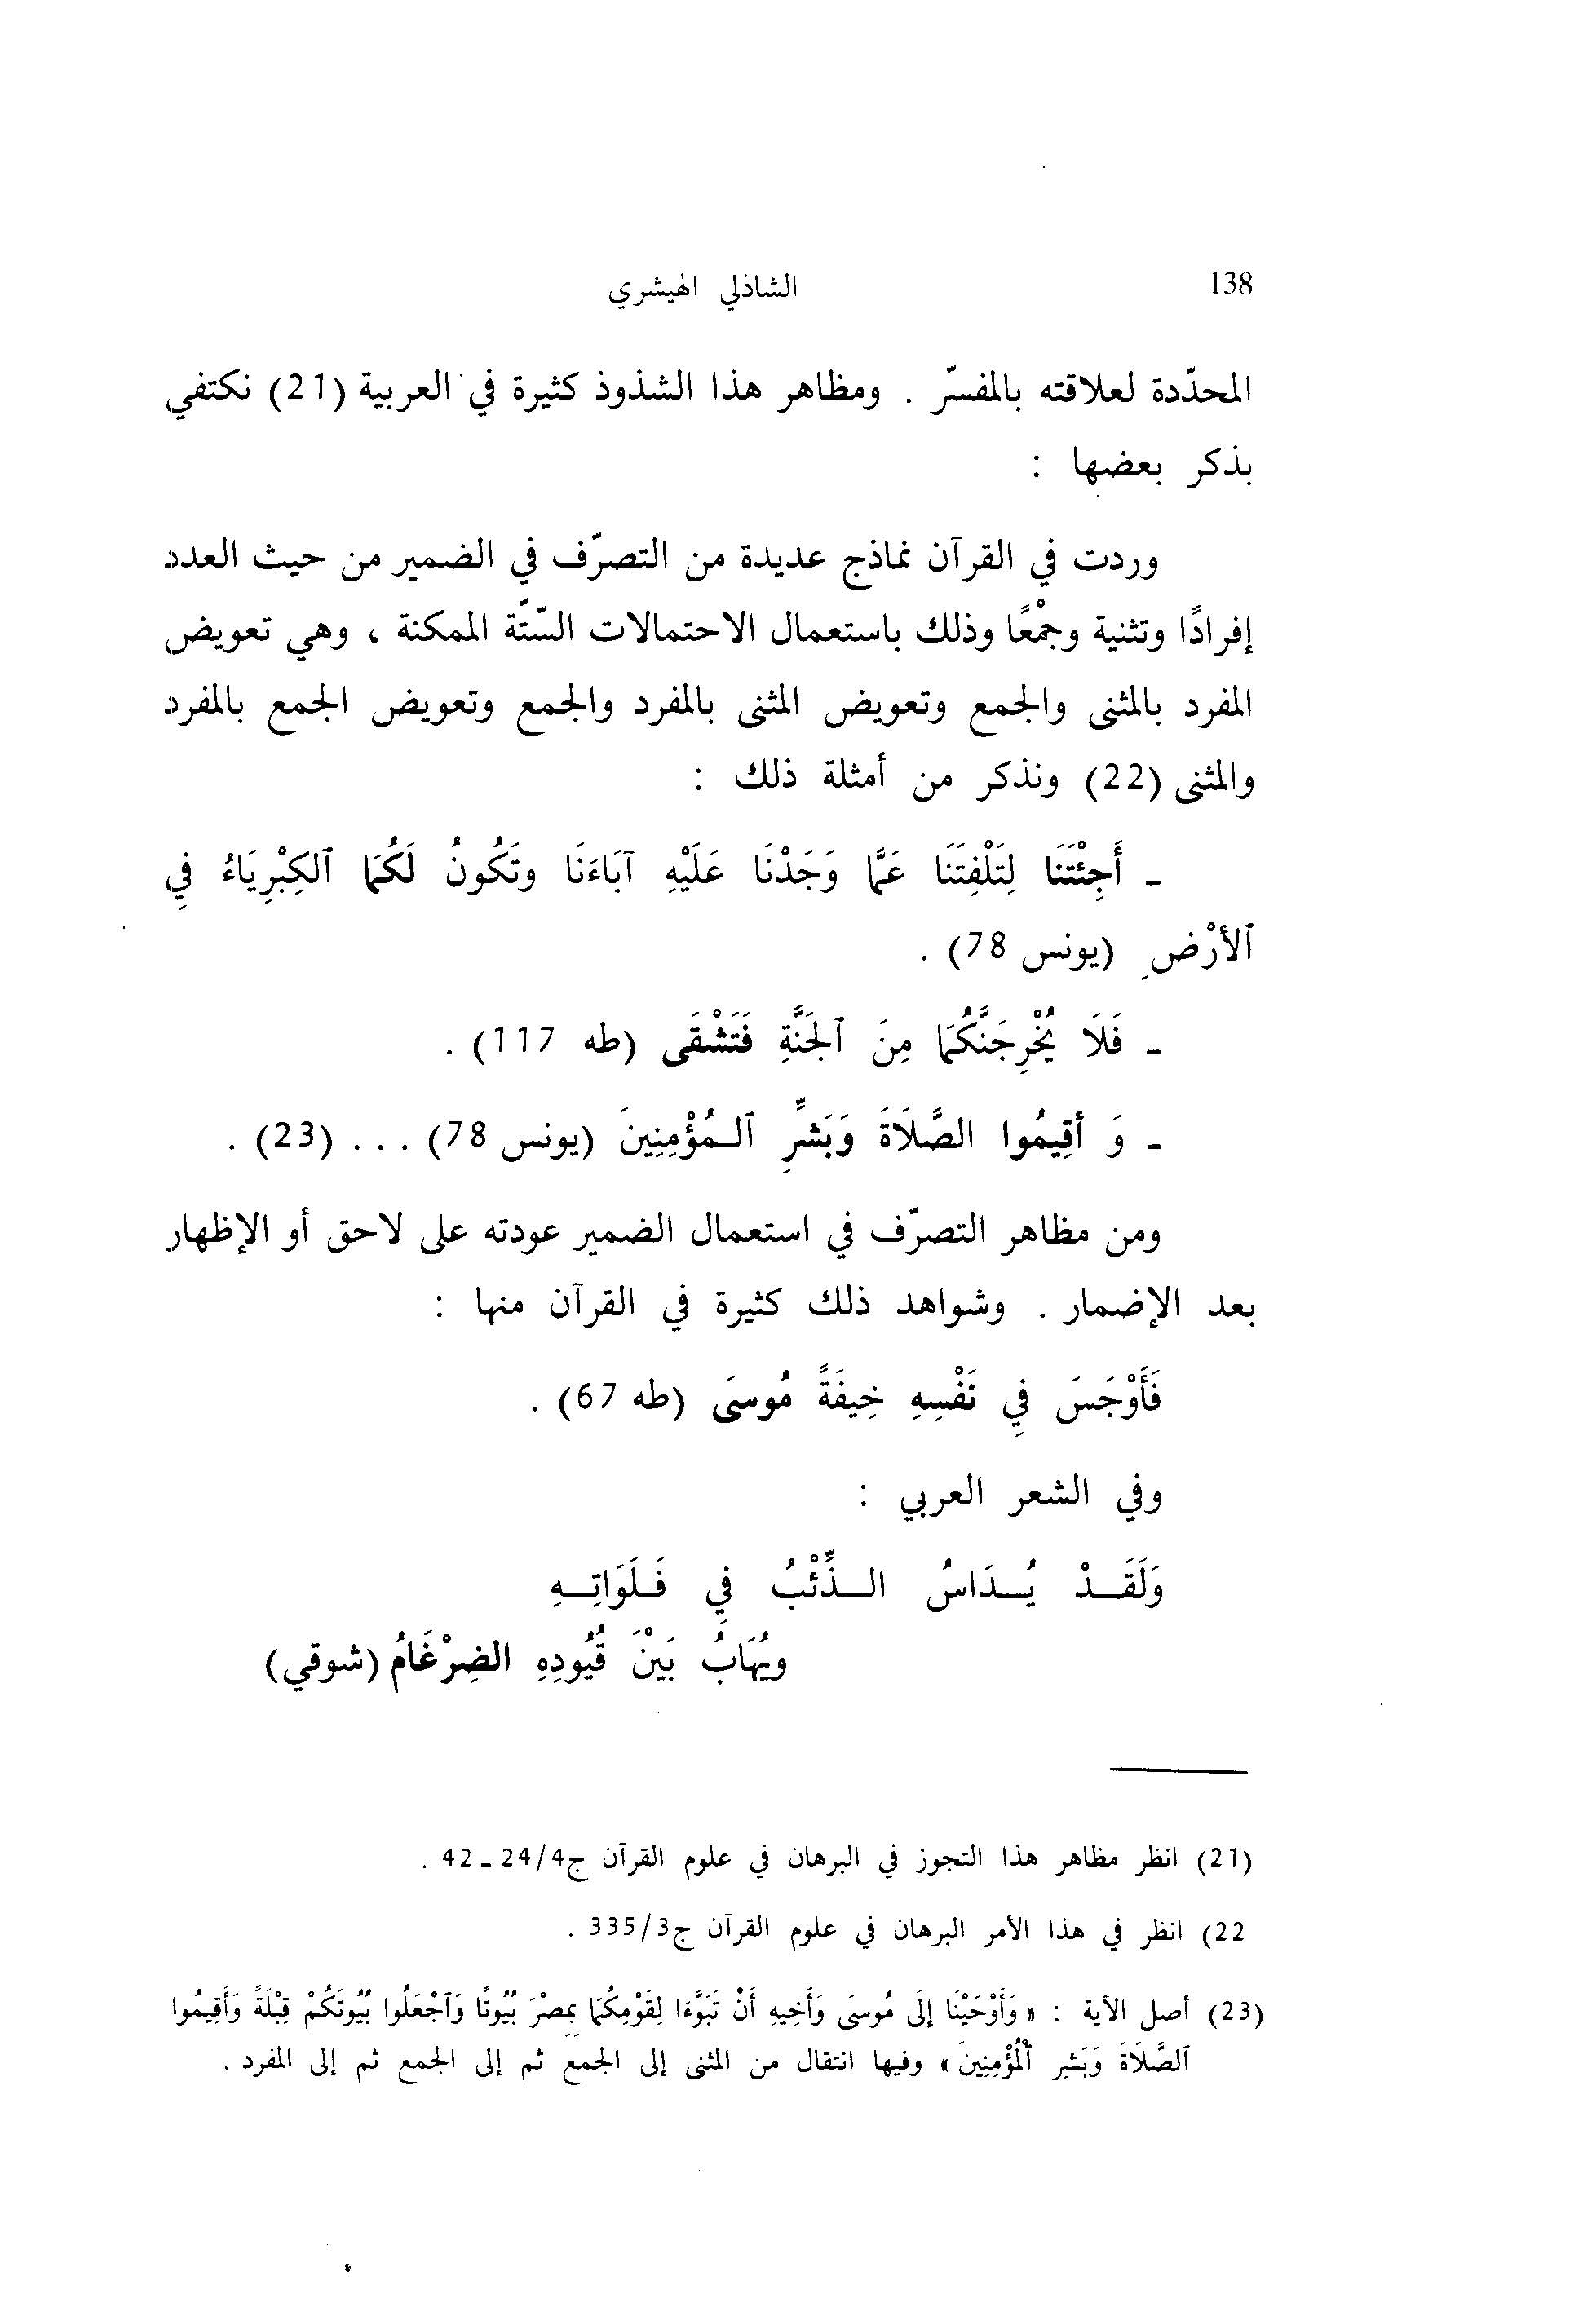 138
الشاذلي الهيشري
المحدّدة لعلاقته بالمفسرّ . ومظاهر هذا الشذوذ كثيرة في العربية (21) نكتفي
بذكر بعضها :
وردت في القرآن نماذج عديدة من التصرّف في الضمير من حيث العدد
إفرادًا وتثنية وجمْعًا وذلك باستعمال الاحتمالات الستّة الممكنة ، وهي تعويض
المفرد بالمثنى والجمع وتعويض المثنى بالمفرد والجمع وتعويض الجمع بالمفرد
والمثنى (22) ونذكر من أمثلة ذلك :
ـ أَجِئْتَنَا لِتَلْفِتَنَا عَمَّا وَجَدْنَا عَلَيْهِ آبَاءَنَا وتَكُونُ لَكُمَا ٱلكِبْرِيَاءُ فِي
ٱلأرْضِ (يونس 78) .
ـ فَلَا يُخْرِجَنَّكُمَا مِنَ ٱلجَنَّةِ فَتَشْقَى (طه 117) .
ـ وَ أقِيمُوا الصَّلَاةَ وَبَشِّرِ ٱلـمُؤْمِنِينَ (يونس 78) ... (23) .
ومن مظاهر التصرّف في استعمال الضمير عودته على لاحق أو الإظهار
بعد الإضمار . وشواهد ذلك كثيرة في القرآن منها :
فَأَوْجَسَ فِي نَفْسِهِ خِيفَةً مُوسَى (طه 67) .
وفي الشعر العربي :
وَلَقَــدْ يُــدَاسُ الــذِّئْبُ فِي فَـلَوَاتِـهِ
ويُهَابُ بَيْنَ قُيُودِهِ الضِرْغَامُ (شوقي)
(21) انظر مظاهر هذا التجوز في البرهان في علوم القرآن ج4/24 ـ 42 .
22) انظر في هذا الأمر البرهان في علوم القرآن ج3/335 .
(23) أصل الآية : « وَأَوْحَيْنَا إلَى مُوسَى وَأَخِيهِ أَنْ تَبَوَّءَا لِقَوْمِكُمَا بِمِصْرَ بُيُوتًا وَٱجْعَلُوا بُيُوتَكُمْ قِبْلَةً وَأَقِيمُوا
ٱلصَّلَاةَ وَبَشِرِ ٱلْمُؤْمِنِينَ » وفيها انتقال من المثنى إلى الجمع ثم إلى الجمع ثم إلى المفرد .